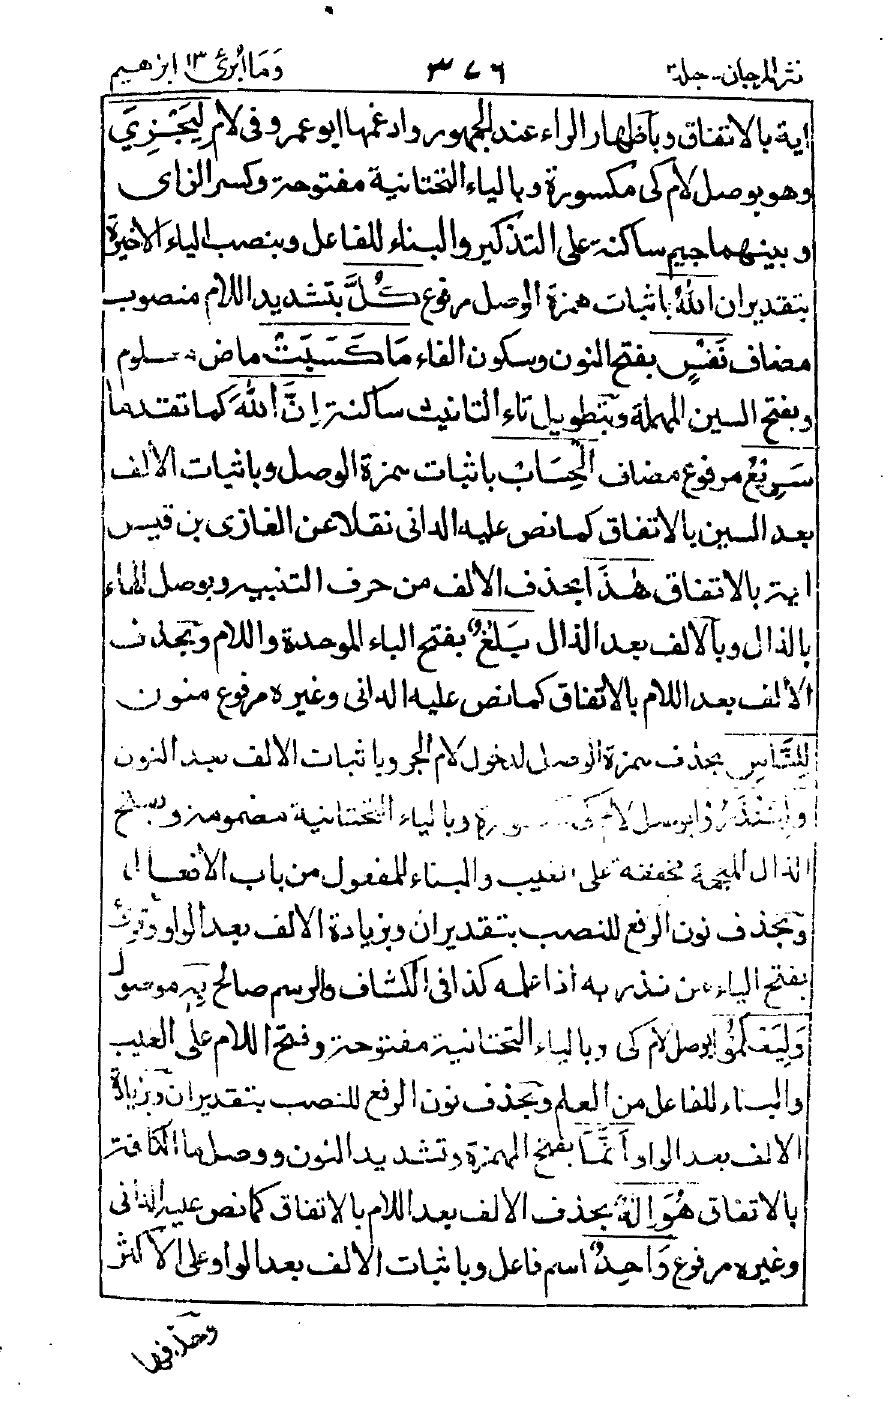 نثر المرجان - جلد ٣ ٣٧٦ وَمَا أُبَرِّئُ ١٣ ابراهيم
اية بالاتفاق وباظهار الراء عند الجمهور وادغمها ابو عمرو فى لام لِيَجْزِيَ
وهو بوصل لام كى مكسورة وبالياء التحتانية مفتوحة وكسر الزاى
وبينهما جيم ساكنة على التذكير والبناء للفاعل وبنصب الياء الاخيرة
بتقدير ان اللهُ باثبات همزة الوصل مرفوع كُلَّ بتشديد اللام منصوب
مضاف نَفْسٍ بفتح النون وسكون الفاء مَا كَسَبَتْ ماض معلوم
وبفتح السين المهملة وبتطويل تاء التانيث ساكنة اِنَّ اللهَ كما تقدما
سَرِيْعُ مرفوع مضاف الْحِسَابْ باثبات همزة الوصل وباثبات الالف
بعد السين بالاتفاق كما نص عليه الدانى نقلا عن الغازى بن قيس
اية بالاتفاق هٰذَا بحذف الالف من حرف التنبيه وبوصل الهاء
بالذال وبالالف بعد الذال بَلٰغٌ بفتح الباء الموحدة واللام وبحذف
الالف بعد اللام بالاتفاق كما نص عليه الدانى وغيره مرفوع منون
لِلنَّاسِ بحذف همزة الوصل لدخول لام الجر وباثبات الالف بعد النون
وَلِيُنْذَرُوْا بوصل لام كى مكسورة وبالياء التحتانية مضمومة وبفتح
الذال المعجمة مخففة على الغيب والبناء للمفعول من باب الافعال
وبحذف نون الرفع للنصب بتقدير ان وبزيادة الالف بعد الواو وقرئ
بفتح الياء من نذر به اذا علمه كذا فى الكشاف والرسم صالح بِهٖ موصول
وَلِيَعْلَمُوْا بوصل لام كى وبالياء التحتانية مفتوحة وفتح اللام على الغيب
والبناء للفاعل من العلم وبحذف نون الرفع للنصب بتقدير ان وبزيادة
الالف بعد الواو اَنَّمَا بفتح الهمزة وتشديد النون ووصل ما الكافة
بالاتفاق هُوَ اِلٰهٌ بحذف الالف بعد اللام بالاتفاق كما نص عليه الدانى
وغيره مرفوع وَاحِدٌ اسم فاعل وباثبات الالف بعد الواو على الاكثر
وحذفها